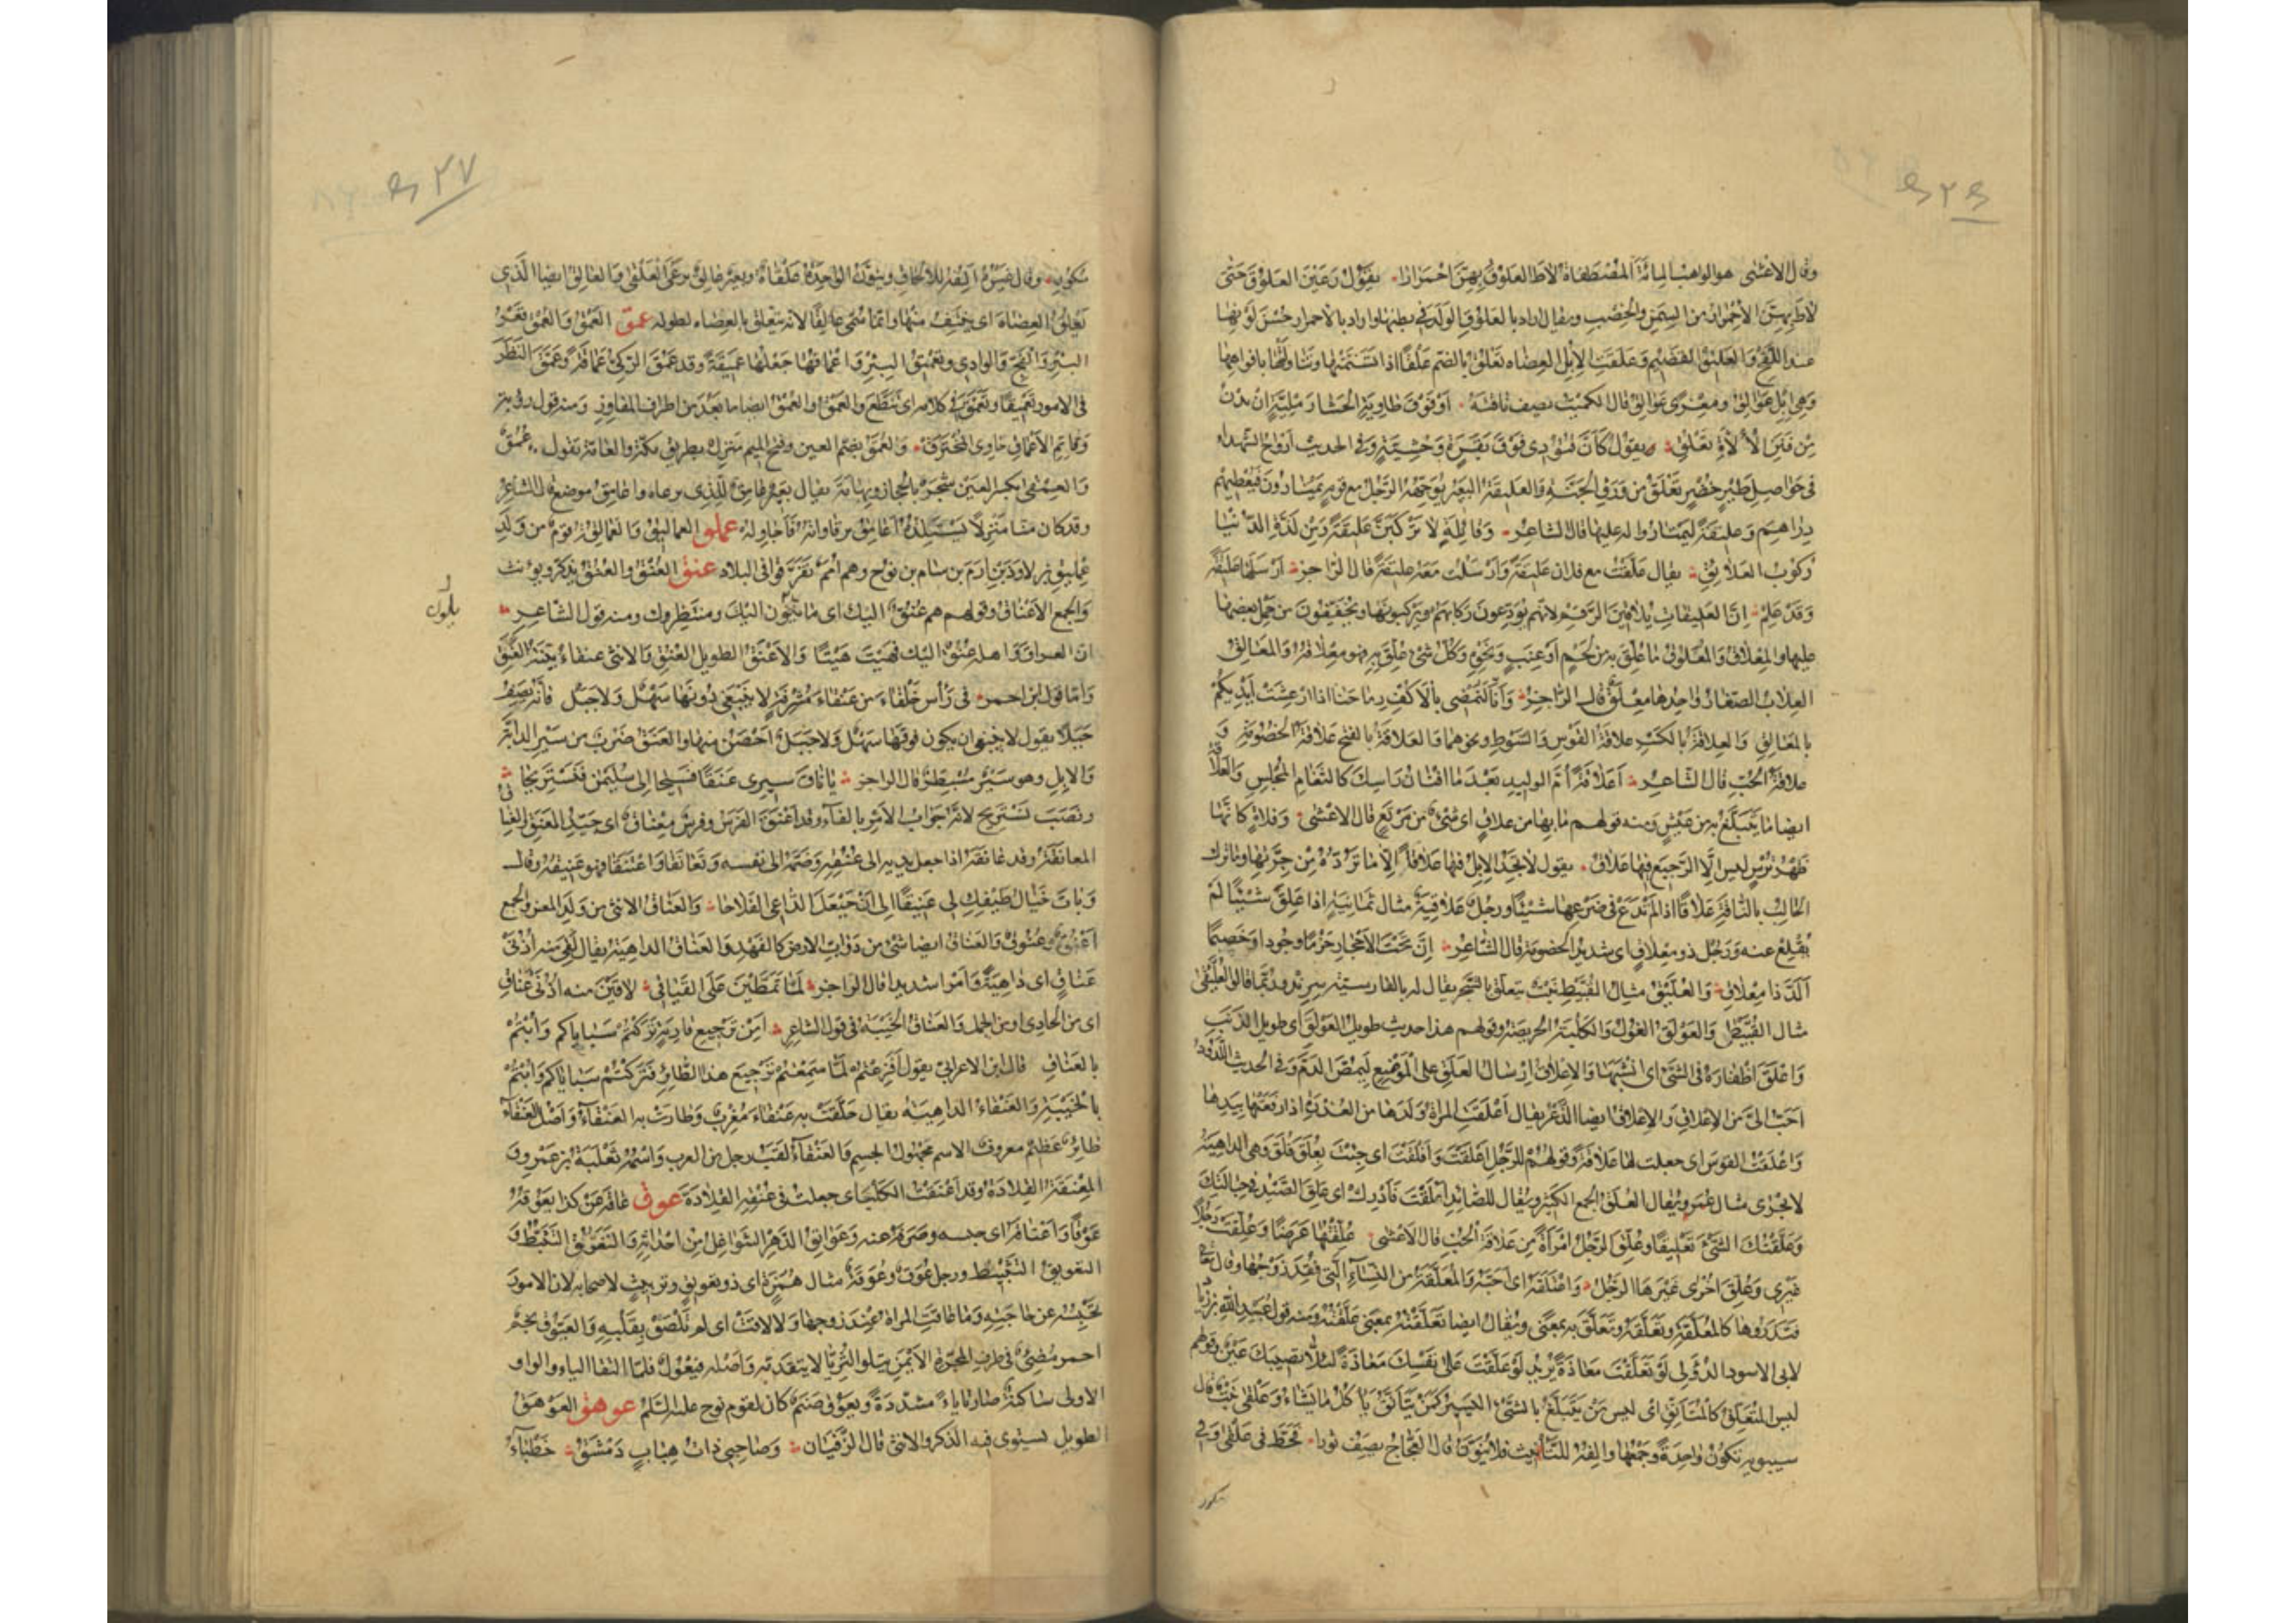 وقال الاعشى هو الواهب المائة المصطفاة لاط العلوق بهن احمرارا يقول رعين العلوق حتى
لاط بهن الاحمرار من السمن والخصب ويقال اراد بالعلوق الولد في بطنها واراد بالاحمرار حسن لونها
عند اللقح والعليق القضيم وعلقت الابل العضاه تعلق بالضم علقا اذا تسنمتها وتناولتها بافواهها
وهي ابل عوالق ومعزى عوالق قال الكميت يصف ناقته او فوق طاوية الحشا رملية ان تدن
من فنن الألاءة تعلق يقول كأن قتودي فوق بقرة وحشية وفي الحديث ارواح الشهداء
في حواصل طير خضر تعلق من ورق الجنة والعليقة البعير يوجهه الرجل مع قوم يمتارون فيعطيهم
دراهم وعليقة ليمتاروا له عليها قال الشاعر وقائلة لا تركبن عليقة ومن لذة الدنيا
ركوب العلائق يقال علقت مع فلان عليقة وارسلت معه عليقة قال الراجز ارسلها عليقة
وقد علم ان العليقات يلاقين الرقم لانهم يودعون ركابهم ويركبونها ويخففون من حمل بعضها
عليها والمعلاق والمعلوق ما علق به من لحم او عنب ونحوه وكل شئ علق به فهو معلاقه والمعالق
العلاب الصغار واحدها معلق قال الراجز وانا لنمضي بالاكف رماحنا اذا ارعشت ايديكم
بالمعالق والعلاقة بالكسر علاقة القوس والسوط ونحوهما والعلاقة بالفتح علاقة الخصومة و
علاقة الحب قال الشاعر اعلاقة أم الوليد بعد ما افنان راسك كالثغام المخلس والعلاقة
ايضا ما يتبلغ به من عيش ومنه قولهم ما بها من علاق اى شئ من مرتع قال الاعشى وفلاة كأنها
ظهر ترس ليس الا الرجيع فيها علاق يقول لا تجد الابل فيها علاقا الا ما تردده من جرتها وما ترك
الحالب بالناقة علاقا اذا لم يدع في ضرعها شيئا ورجل علاقية مثال ثمانية اذا علق شيئا لم
يقلع عنه ورجل ذو معلاق اى شديد الخصومة قال الشاعر ان تحت الاحجار حزما وجودا وخصيما
ألد ذا معلاق والعليق مثال القبيط نبت يتعلق بالشجر يقال له بالفارسية سرند وربما قالوا العليقى
مثال القبيطى والعولق الغول والكلبة الحريصة وقولهم هذا حديث طويل العولق اى طويل الذنب
واعلق اظفاره في الشئ اى انشبها والاعلاق ارسال العلق على الموضع ليمص الدم وفي الحديث اللدود
احب الي من الاعلاق والاعلاق ايضا الدغر يقال اعلقت المراة ولدها من العذرة اذا رفعتها بيدها
واعلقت القوس اى جعلت لها علاقة وقولهم للرجل اعلقت وافلقت اى جئت بعلق فلق وهي الداهية
لا تجرى مثال عمر ويقال العلق الجمع الكثير ويقال للصائد اعلقت فأدرك اى علق الصيد في حبالتك
وعلقت الشئ تعليقا وعلق الرجل امرأة من علاقة الحب قال الاعشى علقتها عرضا وعلقت رجلا
غيرى وعلق اخرى غيرها الرجل واعتلقه اى احبه والمعلقة من النساء التي فقد زوجها وقال تعالى
فتذروها كالمعلقة وتعلقه وتعلق به بمعنى ويقال ايضا تعلقته بمعنى علقته ومنه قول عبيد الله بن زياد
لابى الاسود الدؤلى لو تعلقت معاذة يريد لو علقت على نفسك معاذة لئلا تصيبك عين وقولهم
ليس المتعلق كالمتأنق اى ليس من يتبلغ بالشئ اليسير كمن يتأنق يأكل ما يشاء وعلقى نبت قال
سيبويه تكون واحدة وجمعا والفه للتأنيث فلا ينون قال العجاج يصف ثورا فحط في علقى وفي
مكور
٤٢٧
مكور وقال غيره الفه للالحاق وينون الواحدة علقاة وبعير عالق يرعى العلقى والعالق ايضا الذي
يعلق العضاه اى ينتف منها وانما سمي عالقا لانه يتعلق بالعضاه لطوله عمق العمق والعمق قعر
البئر والفج والوادي وتعميق البئر واعماقها جعلها عميقة وقد عمق الركي عماقة وعمق النظر
في الامور تعميقا وتعمق في كلامه اى تنطع والعمق والعمق ايضا ما بعد من اطراف المفاوز ومنه قول رؤبة
وقاتم الاعماق خاوى المخترق والعمق بضم العين وفتح الميم منزل بطريق مكة والعامة تقول عمق
والعمقى بكسر العين شجر بالحجاز وتهامة يقال بعير عامق للذي يرعاه واعامق موضع قال الشاعر
وقد كان منا منزلا نستلذه اعامق برقاواته فأجاوله عملق العماليق والعمالقة قوم من ولد
عمليق بن لاوذ بن ارم بن سام بن نوح وهم امم تفرقوا في البلاد عنق العنق والعنق يذكر ويونث
والجمع الاعناق وقولهم هم عنق اليك اى مائلون اليك ومنتظروك ومنه قول الشاعر
ان العراق واهله عنق اليك فهيت هيتا والاعنق الطويل العنق والانثى عنقاء بينة العنق
واما قول ابن احمر في رأس خلقاء من عنقاء مشرفة لا يبتغى دونها سهل ولا جبل فانه يصف
جبلا يقول لا ينبغي ان يكون فوقها سهل ولا جبل احصن منها والعنق ضرب من سير الدابة
والابل وهو سير مسبطر قال الراجز يا ناق سيرى عنقا فسيحا الى سليمن فنستريحا
ونصب نستريح لانه جواب الامر بالفاء وقد اعنق الفرس وفرس معناق اى جيد العنق والعناق
المعانقة وقد عانقه اذا جعل يديه الى عنقه وضمه الى نفسه وتعانقا واعتنقا فهو عنيقه وقال
وبات خيال طيفك لى عنيقا الى ان حيعل الداعى الفلاحا والعناق الانثى من ولد المعز والجمع
اعنق وعنوق والعناق ايضا شئ من دواب الارض كالفهد والعناق الداهية يقال لقى منه اذنى
عناق اى داهية وامرا شديدا قال الراجز لما تمطين على القياقى لاقين منه اذنى عناق
اى من الحادى او من الجمل والعناق الخيبة في قول الشاعر امن ترجيع قارية تركتم سباياكم وابتم
بالعناق قال ابن الاعرابى يقول افزعتم لما سمعتم ترجيع هذا الطائر فتركتم سباياكم وابتم
بالخيبة والعنقاء الداهية يقال حلقت به عنقاء مغرب وطارت به العنقاء واصل العنقاء
طائر عظيم معروف الاسم مجهول الجسم والعنقاء لقب رجل من العرب واسمه ثعلبة بن عمرو و
المعنقة القلادة وقد اعنقت الكلب اى جعلت في عنقه القلادة عوق عاقه عن كذا يعوقه
عوقا واعتاقه اى حبسه وصرفه عنه وعوائق الدهر الشواغل من احداثه والتعوق التثبط و
التعويق التثبيط ورجل عوق وعوقة مثال همزة اى ذو تعويق وترييث لاصحابه لان الامور
تحبسه عن حاجته وما عاقت المراة عند زوجها ولا لاقت اى لم تلصق بقلبه والعيوق نجم
احمر مضئ في طرف المجرة الايمن يتلو الثريا لا يتقدمه واصله فيعول فلما التقا الياء والواو
الاولى ساكنة صارتا ياء مشددة ويعوق صنم كان لقوم نوح عليه السلم عوهق العوهق
الطويل يستوى فيه الذكر والانثى قال الزفيان وصاحبى ذات هباب دمشق خطباء